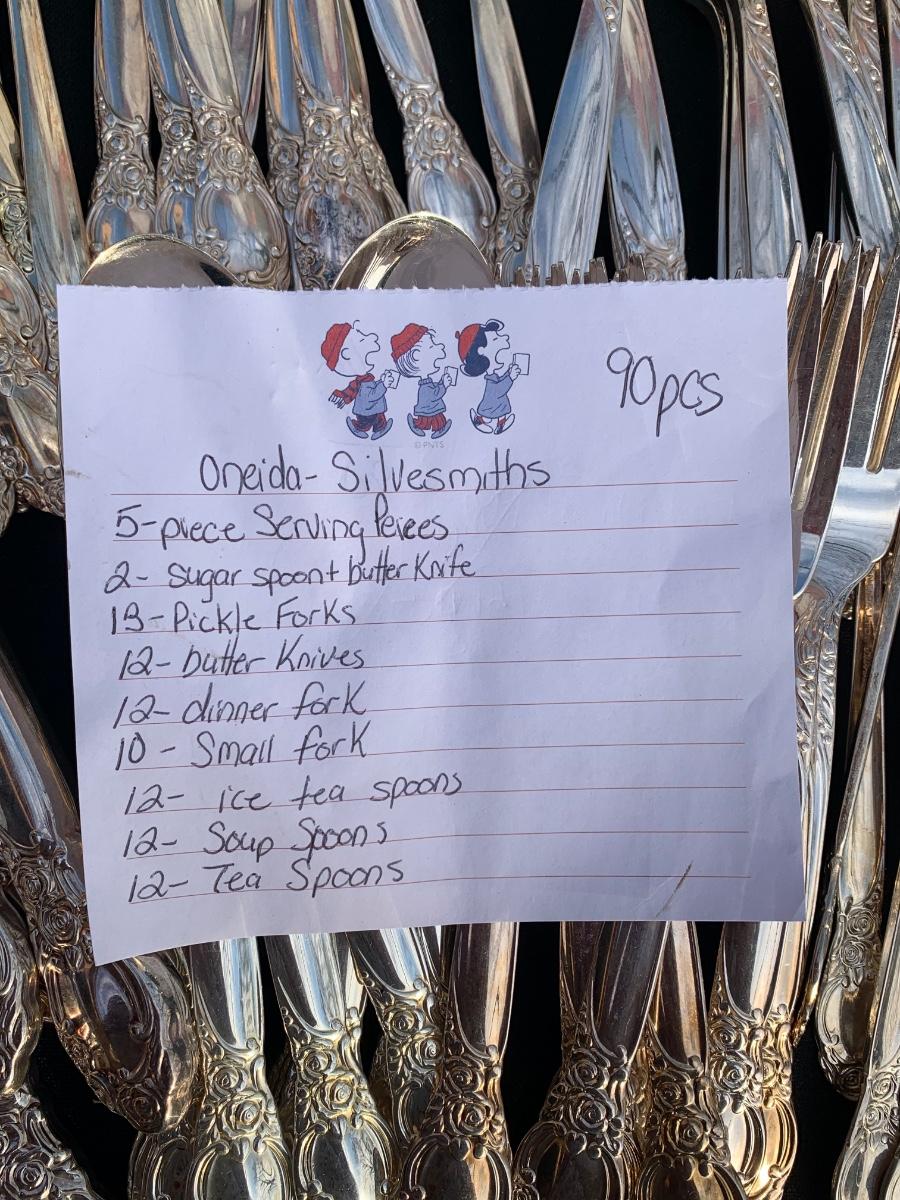 90pcs
© PNTS
Oneida- Silvesmiths
5-piece Serving Peices
2- Sugar spoon + butter Knife
13-Pickle Forks
12- butter Knives
12- dinner fork
10 - Small fork
12- ice tea spoons
12- Soup Spoons
12- Tea Spoons